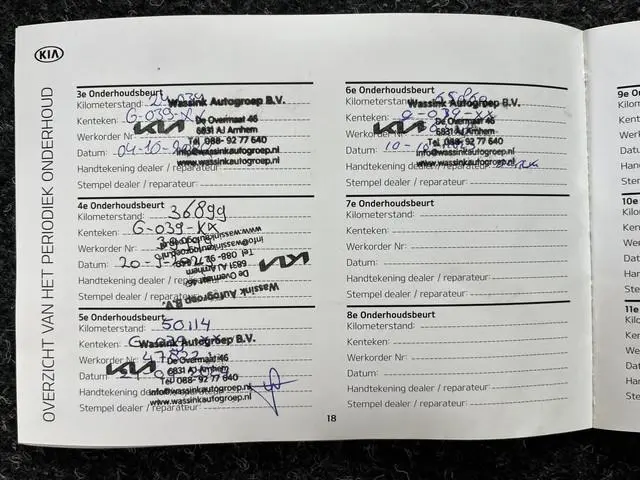 KIA
OVERZICHT VAN HET PERIODIEK ONDERHOUD
3e Onderhoudsbeurt
Kilometerstand:
Wassink Autogroep B.V.
Kenteken: G-039-
De Overmaat 46
Werkorder Nr
KIA
6831 AJ Arnhem
Tel. 088- 92 77 640
Datum: 04-10-
info@wassinkautogroep.nl
Handtekening dealer / reparateur:
www.wassinkautogroep.nl
Stempel dealer / reparateur:
4e Onderhoudsbeurt
Kilometerstand: 36899
Kenteken: G-039-XX
www.wassinkautogroep.nl
Werkorder Nr:
info@wassinkautogroep.nl
Tel. 088- 92 77 640
Datum: 20-
6831 AJ Arnhem
KIA
Handtekening dealer / reparateur:
De Overmaat 46
Stempel dealer / reparateur:
Wassink Autogroep B.V.
5e Onderhoudsbeurt
Kilometerstand: 50114
Kenteken:
Wassink Autogroep B.V.
Werkorder Nr:
De Overmaat 46
KIA
6831 AJ Arnhem
Datum:
Tel. 088- 92 77 640
Handtekening dealer / reparateur:
info@wassinkautogroep.nl
www.wassinkautogroep.nl
Stempel dealer / reparateur:
6e Onderhoudsbeurt
Kilometerstand:
Wassink Autogroep B.V.
Kenteken: -039-XX
De Overmaat 46
Werkorder
KIA
6831 AJ Arnhem
Tel. 088- 92 77 640
Datum: 10-
info@wassinkautogroep.nl
Handtekening dealer / reparateur:
www.wassinkautogroep.nl
Stempel dealer / reparateur:
7e Onderhoudsbeurt
Kilometerstand:
Kenteken:
Werkorder Nr:
Datum:
Handtekening dealer / reparateur:
Stempel dealer / reparateur:
8e Onderhoudsbeurt
Kilometerstand:
Kenteken:
Werkorder Nr:
Datum:
Handtekening dealer / reparateur:
Stempel dealer / reparateur:
18
9e O
10e
11e